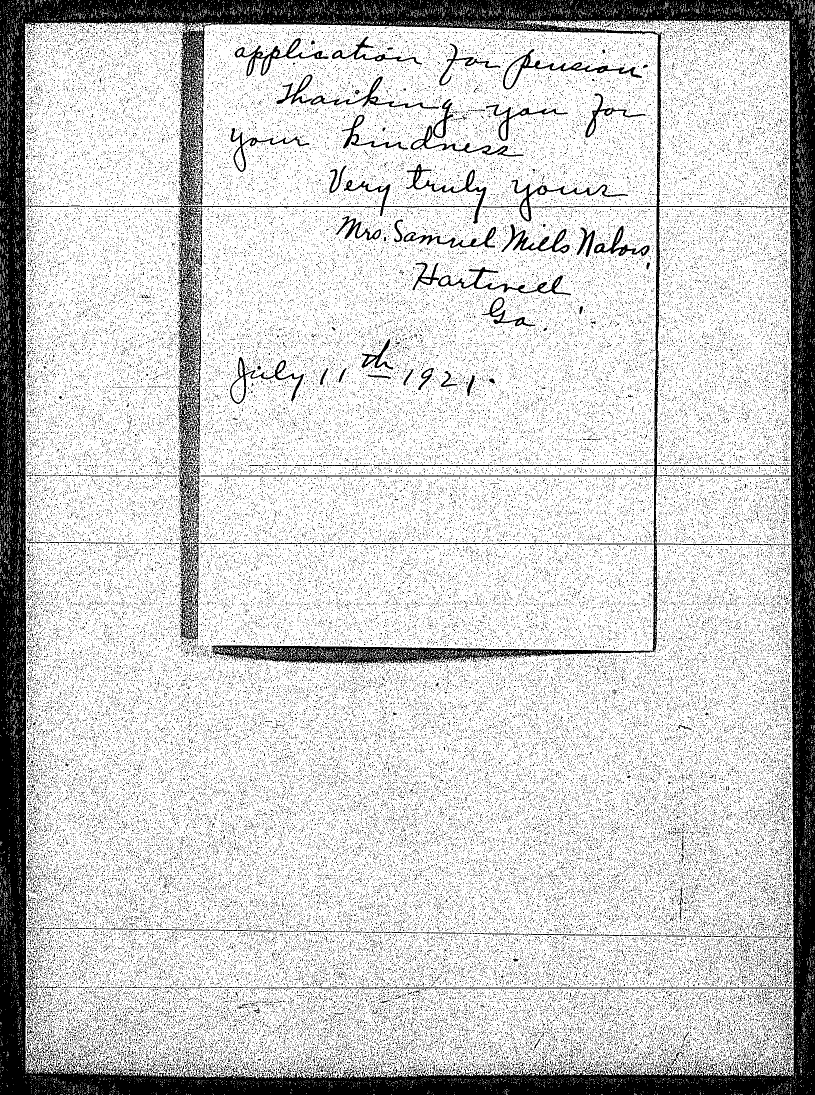 application for pension
Thanking you for
your kindness
Very truly yours
Mrs. Samuel Mills Nabors,
Hartwell,
Ga.
July 11th 1921.